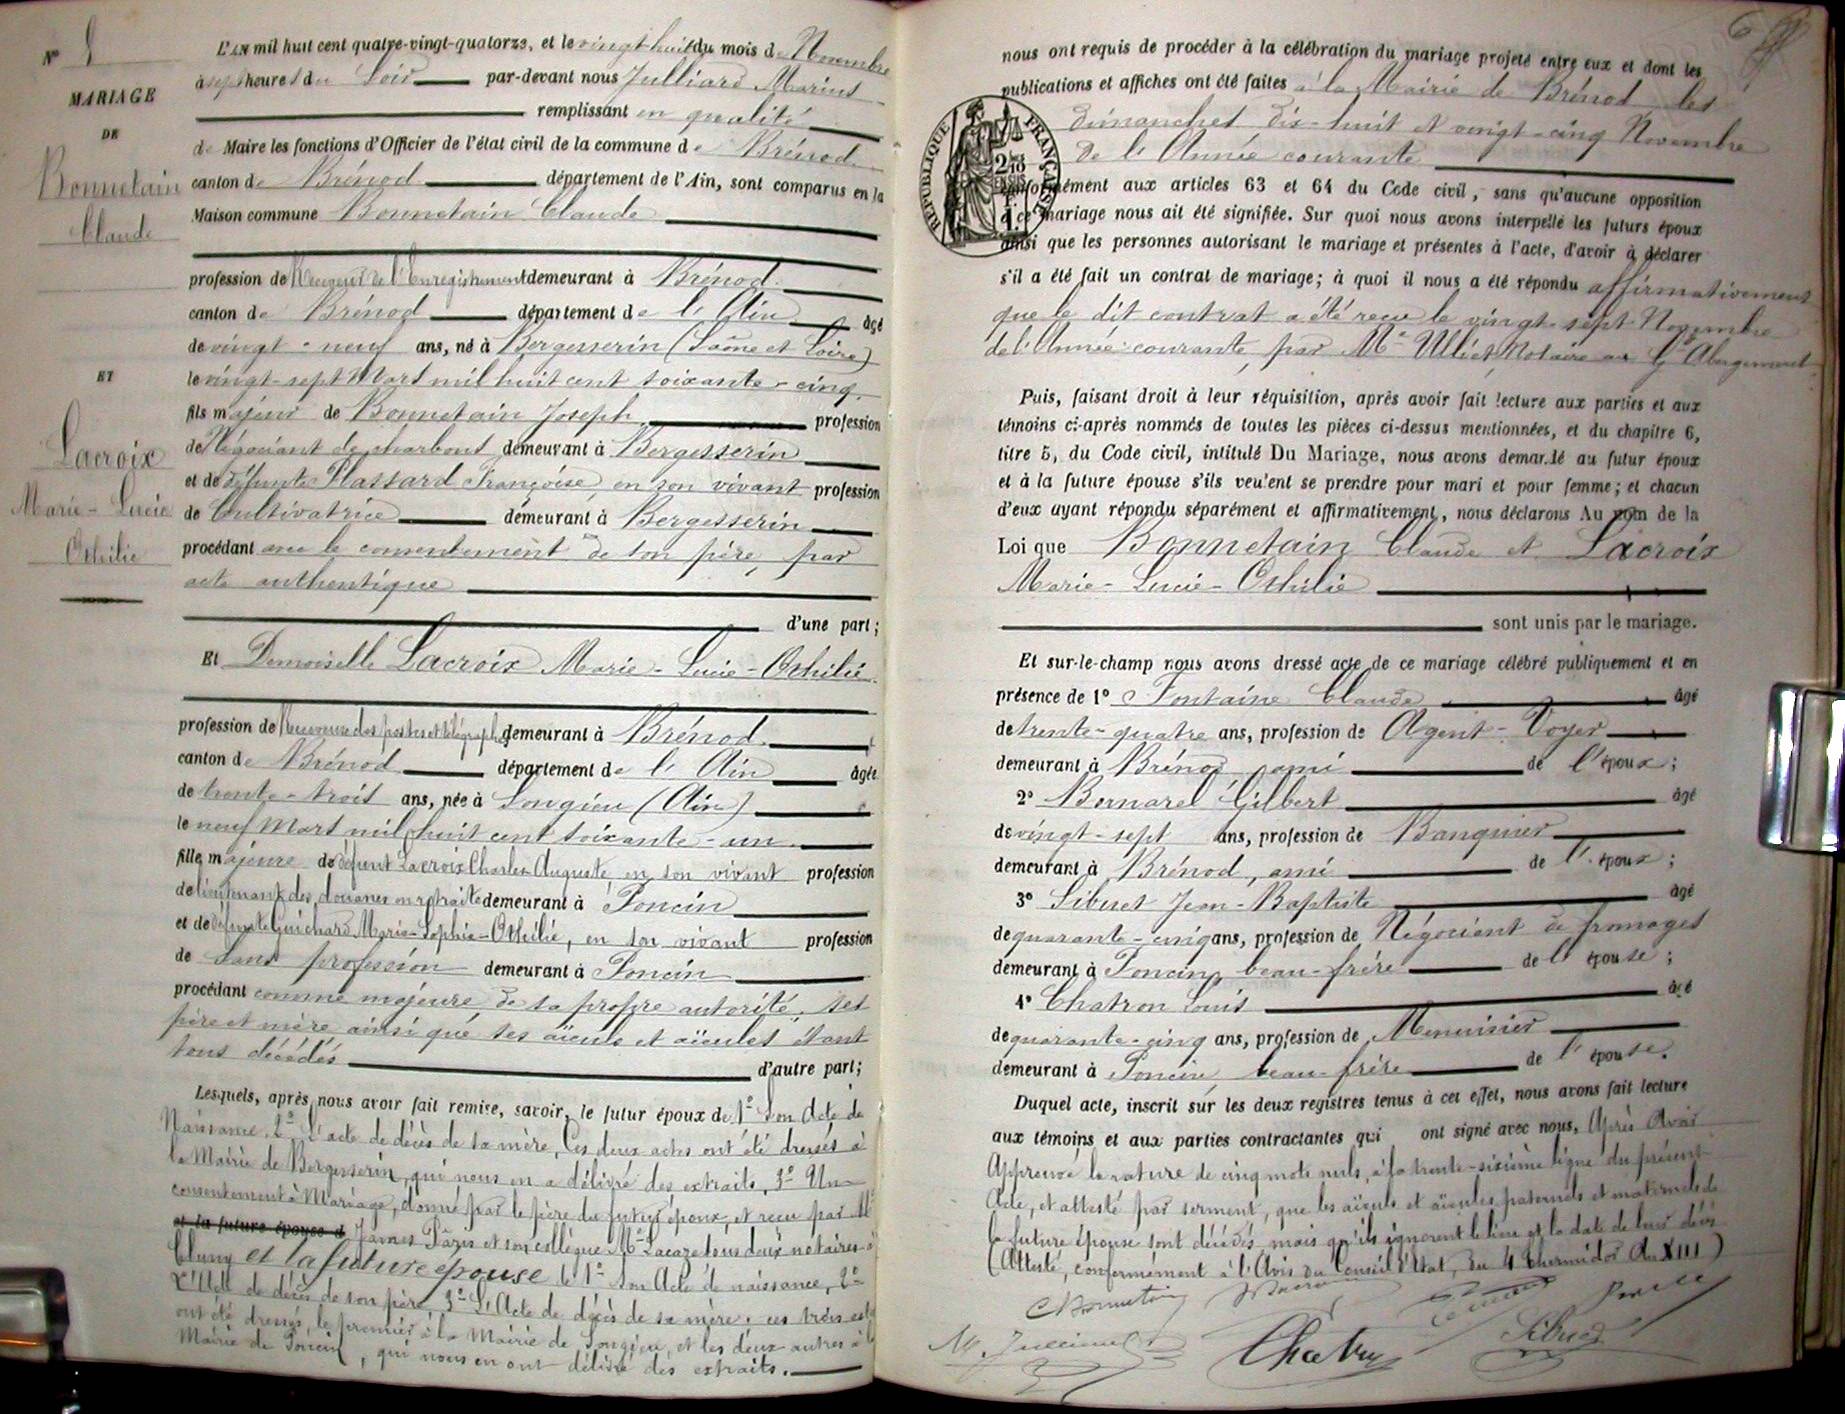 N° 8
MARIAGE
DE
Bonnetain
Claude
ET
Lacroix
Marie-Lucie
Othilie
L'AN mil huit cent quatre-vingt-quatorze, et le vingt-huit du mois de Novembre
à sept heures du soir par-devant nous Julliard Marius
remplissant en qualité
de Maire les fonctions d'Officier de l'état civil de la commune de Brénod
canton de Brénod département de l'Ain, sont comparus en la
Maison commune Bonnetain Claude
profession de Receveur de l'Enregistrement demeurant à Brénod
canton de Brénod département de l'Ain âgé
de vingt-neuf ans, né à Bergesserin (Saône et Loire)
le vingt-sept Mars mil huit cent soixante-cinq
fils majeur de Bonnetain Joseph profession
de Négociant de charbons demeurant à Bergesserin
et de défunte Plassard Françoise, en son vivant profession
de Cultivatrice demeurant à Bergesserin
procédant avec le consentement de son père, par
acte authentique
d'une part;
Et Demoiselle Lacroix Marie-Lucie-Othilie
profession de Receveuse des postes et télégraphes demeurant à Brénod
canton de Brénod département de l'Ain âgée
de trente-trois ans, née à Songieu (Ain)
le neuf Mars mil huit cent soixante-un
fille majeure de défunt Lacroix Charles Auguste en son vivant profession
de lieutenant des douanes en retraite demeurant à Poncin
et de défunte Guichard Marie-Sophie-Othilie, en son vivant profession
de Sans profession demeurant à Poncin
procédant comme majeure, de sa propre autorité, ses
père et mère ainsi que ses aïeuls et aïeules étant
tous décédés d'autre part;
Lesquels, après nous avoir fait remise, savoir, le futur époux de 1° Son Acte de
Naissance, 2° L'acte de décès de sa mère, Ces deux actes ont été dressés à
la Mairie de Bergesserin, qui nous en a délivré des extraits, 3° Un
consentement à Mariage, donné par le père du futur époux, et reçu par Me
et la future épouse d James Pâris et son collègue Me Lacaze tous deux notaires à
Cluny et la future épouse de 1° Son Acte de naissance, 2°
L'Acte de décès de son père, 3° L'Acte de décès de sa mère. ces trois
ont été dressés, le premier à la Mairie de Songieu, et les deux autres à la
Mairie de Poncin, qui nous en ont délivré des extraits.
nous ont requis de procéder à la célébration du mariage projeté entre eux et dont les
publications et affiches ont été faites à la Mairie de Brénod les
dimanches dix-huit et vingt-cinq Novembre
de l'Année courante
RÉPUBLIQUE FRANÇAISE
conformément aux articles 63 et 64 du Code civil, sans qu'aucune opposition
à ce mariage nous ait été signifiée. Sur quoi nous avons interpellé les futurs époux
ainsi que les personnes autorisant le mariage et présentes à l'acte, d'avoir à déclarer
s'il a été fait un contrat de mariage; à quoi il nous a été répondu affirmativement
que le dit contrat a été reçu le vingt-sept Novembre
de l'Année courante, par Me Ulliet, Notaire au Gd Abergement
Puis, faisant droit à leur réquisition, après avoir fait lecture aux parties et aux
témoins ci-après nommés de toutes les pièces ci-dessus mentionnées, et du chapitre 6,
titre 5, du Code civil, intitulé Du Mariage, nous avons demandé au futur époux
et à la future épouse s'ils veulent se prendre pour mari et pour femme; et chacun
d'eux ayant répondu séparément et affirmativement, nous déclarons Au nom de la
Loi que Bonnetain Claude et Lacroix
Marie-Lucie-Othilie
sont unis par le mariage.
Et sur-le-champ nous avons dressé acte de ce mariage célébré publiquement et en
présence de 1° Fontaine Claude âgé
de trente-quatre ans, profession de Agent-Voyer
demeurant à Brénod, ami de l'époux;
2° Bornarel Gilbert âgé
de vingt-sept ans, profession de Banquier
demeurant à Brénod, ami de l'époux;
3° Sibuet Jean-Baptiste âgé
de quarante-cinq ans, profession de Négociant de fromages
demeurant à Poncin, beau-frère de l'épouse;
4° Chatron Louis âgé
de quarante-cinq ans, profession de Menuisier
demeurant à Poncin beau-frère de l'épouse.
Duquel acte, inscrit sur les deux registres tenus à cet effet, nous avons fait lecture
aux témoins et aux parties contractantes qui ont signé avec nous, Après Avoir
Approuvé la rature de cinq mots nuls, à la trente-sixième ligne du présent
Acte, et attesté par serment, que les aïeuls et aïeules paternels et maternels de
la future épouse sont décédés mais qu'ils ignorent le lieu et la date de leur décès
(Attesté, conformément à l'Avis du Conseil d'Etat, du 4 Thermidor An XIII)
C Bonnetain
M. Julliard
Chatron
Sibuet